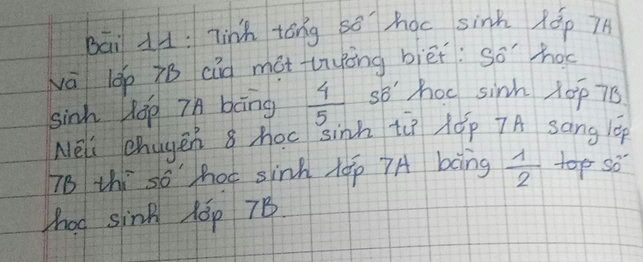 Bài 11: Tính tổng số học sinh lớp 7A
và lớp 7B của một trường biết: Số học
sinh lớp 7A bằng 4/5 số học sinh lớp 7B.
Nếu chuyển 8 học sinh từ lớp 7A sang lớp
7B thì số học sinh lớp 7A bằng 1/2 số
học sinh lớp 7B.